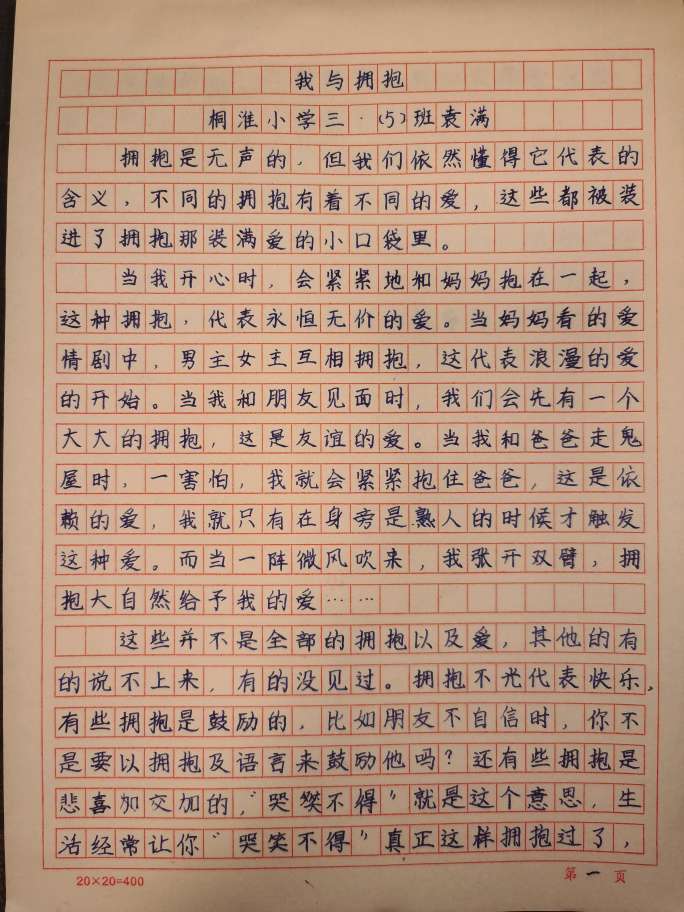 我与拥抱
桐淮小学三·(5)班袁满
拥抱是无声的，但我们依然懂得它代表的
含义，不同的拥抱有着不同的爱，这些都被装
进了拥抱那装满爱的小口袋里。
当我开心时，会紧紧地和妈妈抱在一起，
这种拥抱，代表永恒无价的爱。当妈妈看的爱
情剧中，男主女主互相拥抱，这代表浪漫的爱
的开始。当我和朋友见面时，我们会先有一个
大大的拥抱，这是友谊的爱。当我和爸爸走鬼
屋时，一害怕，我就会紧紧抱住爸爸，这是依
赖的爱，我就只有在身旁是熟人的时候才触发
这种爱。而当一阵微风吹来，我张开双臂，拥
抱大自然给予我的爱……
这些并不是全部的拥抱以及爱，其他的有
的说不上来，有的没见过。拥抱不光代表快乐，
有些拥抱是鼓励的，比如朋友不自信时，你不
是要以拥抱及语言来鼓励他吗？还有些拥抱是
悲喜加交加的，“哭笑不得”就是这个意思，生
活经常让你“哭笑不得”真正这样拥抱过了，
20×20=400
第一页